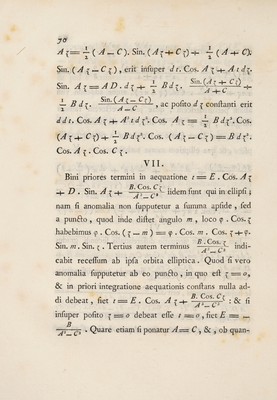 70
A ζ = 1/2 (A — C). Sin. (A ζ + C ζ) + 1/2 (A + C).
Sin. (A ζ — C ζ), erit insuper d t. Cos. A ζ + A t d ζ.
Sin. A ζ = A D. d ζ + 1/2 B d ζ. Sin. (A ζ + C ζ) / A + C +
1/2 B d ζ. Sin. (A ζ — C ζ) / A — C, ac posito d ζ constanti erit
d d t. Cos. A ζ + A² t d ζ². Cos. A ζ = 1/2 B d ζ². Cos.
(A ζ + C ζ) + 1/2 B d ζ². Cos. (A ζ — C ζ) = B d ζ².
Cos. A ζ. Cos. C ζ.
VII.
Bini priores termini in aequatione t = E. Cos. A ζ
+ D. Sin. A ζ + B. Cos. C ζ / A² — C² iidem sunt qui in ellipsi;
nam si anomalia non supputetur a summa apside, sed
a puncto, quod inde distet angulo m, loco φ. Cos. ζ
habebimus φ. Cos. (ζ — m) = φ. Cos. m. Cos. ζ + φ.
Sin. m. Sin. ζ. Tertius autem terminus B. Cos. C ζ / A² — C² indi-
cabit recessum ab ipsa orbita elliptica. Quod si vero
anomalia supputetur ab eo puncto, in quo est ζ = 0,
& in priori integratione aequationis constans nulla ad-
di debeat, fiet t = E. Cos. A ζ + B. Cos. C ζ / A² — C² : & si
insuper posito ζ = 0 debeat esse t = 0, fiet E = —
B / A² — C². Quare etiam si ponatur A = C, &, ob quan-